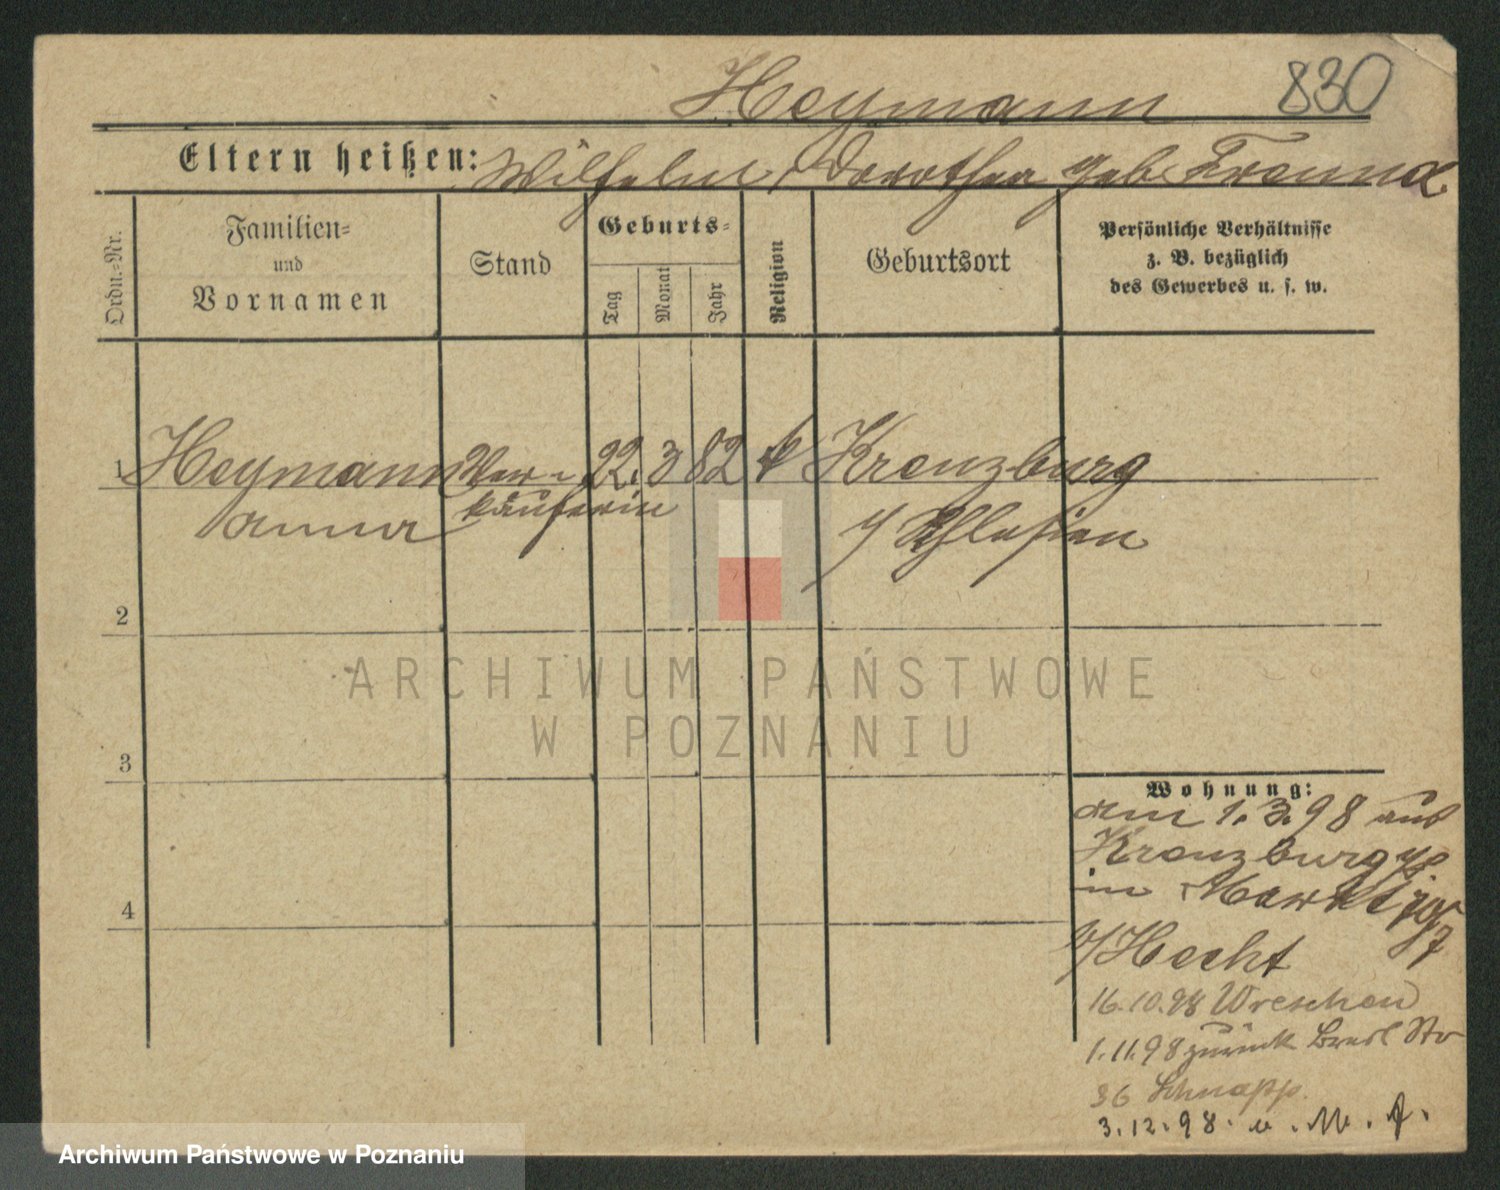 830
Heymann
Eltern heißen: Wilhelm, Dorothea geb.
Ordn.=Nr.
Familien=
und
Vornamen
Stand
Geburts=
Tag
Monat
Jahr
Religion
Geburtsort
Persönliche Verhältnisse
z. B. bezüglich
des Gewerbes u. s. w.
1 Heymann Ver- 22. 3 82 k Kreuzburg
Anna käuferin Schlesien
2
ARCHIWUM PAŃSTWOWE
W POZNANIU
3
Wohnung:
am 1.3.98 aus
Kreuzburg
im Markt
4
b/Hecht
16.10.98 Wreschen
1.11.98 zurück Bresl Str
36 Schnapp.
3.12.98.
Archiwum Państwowe w Poznaniu